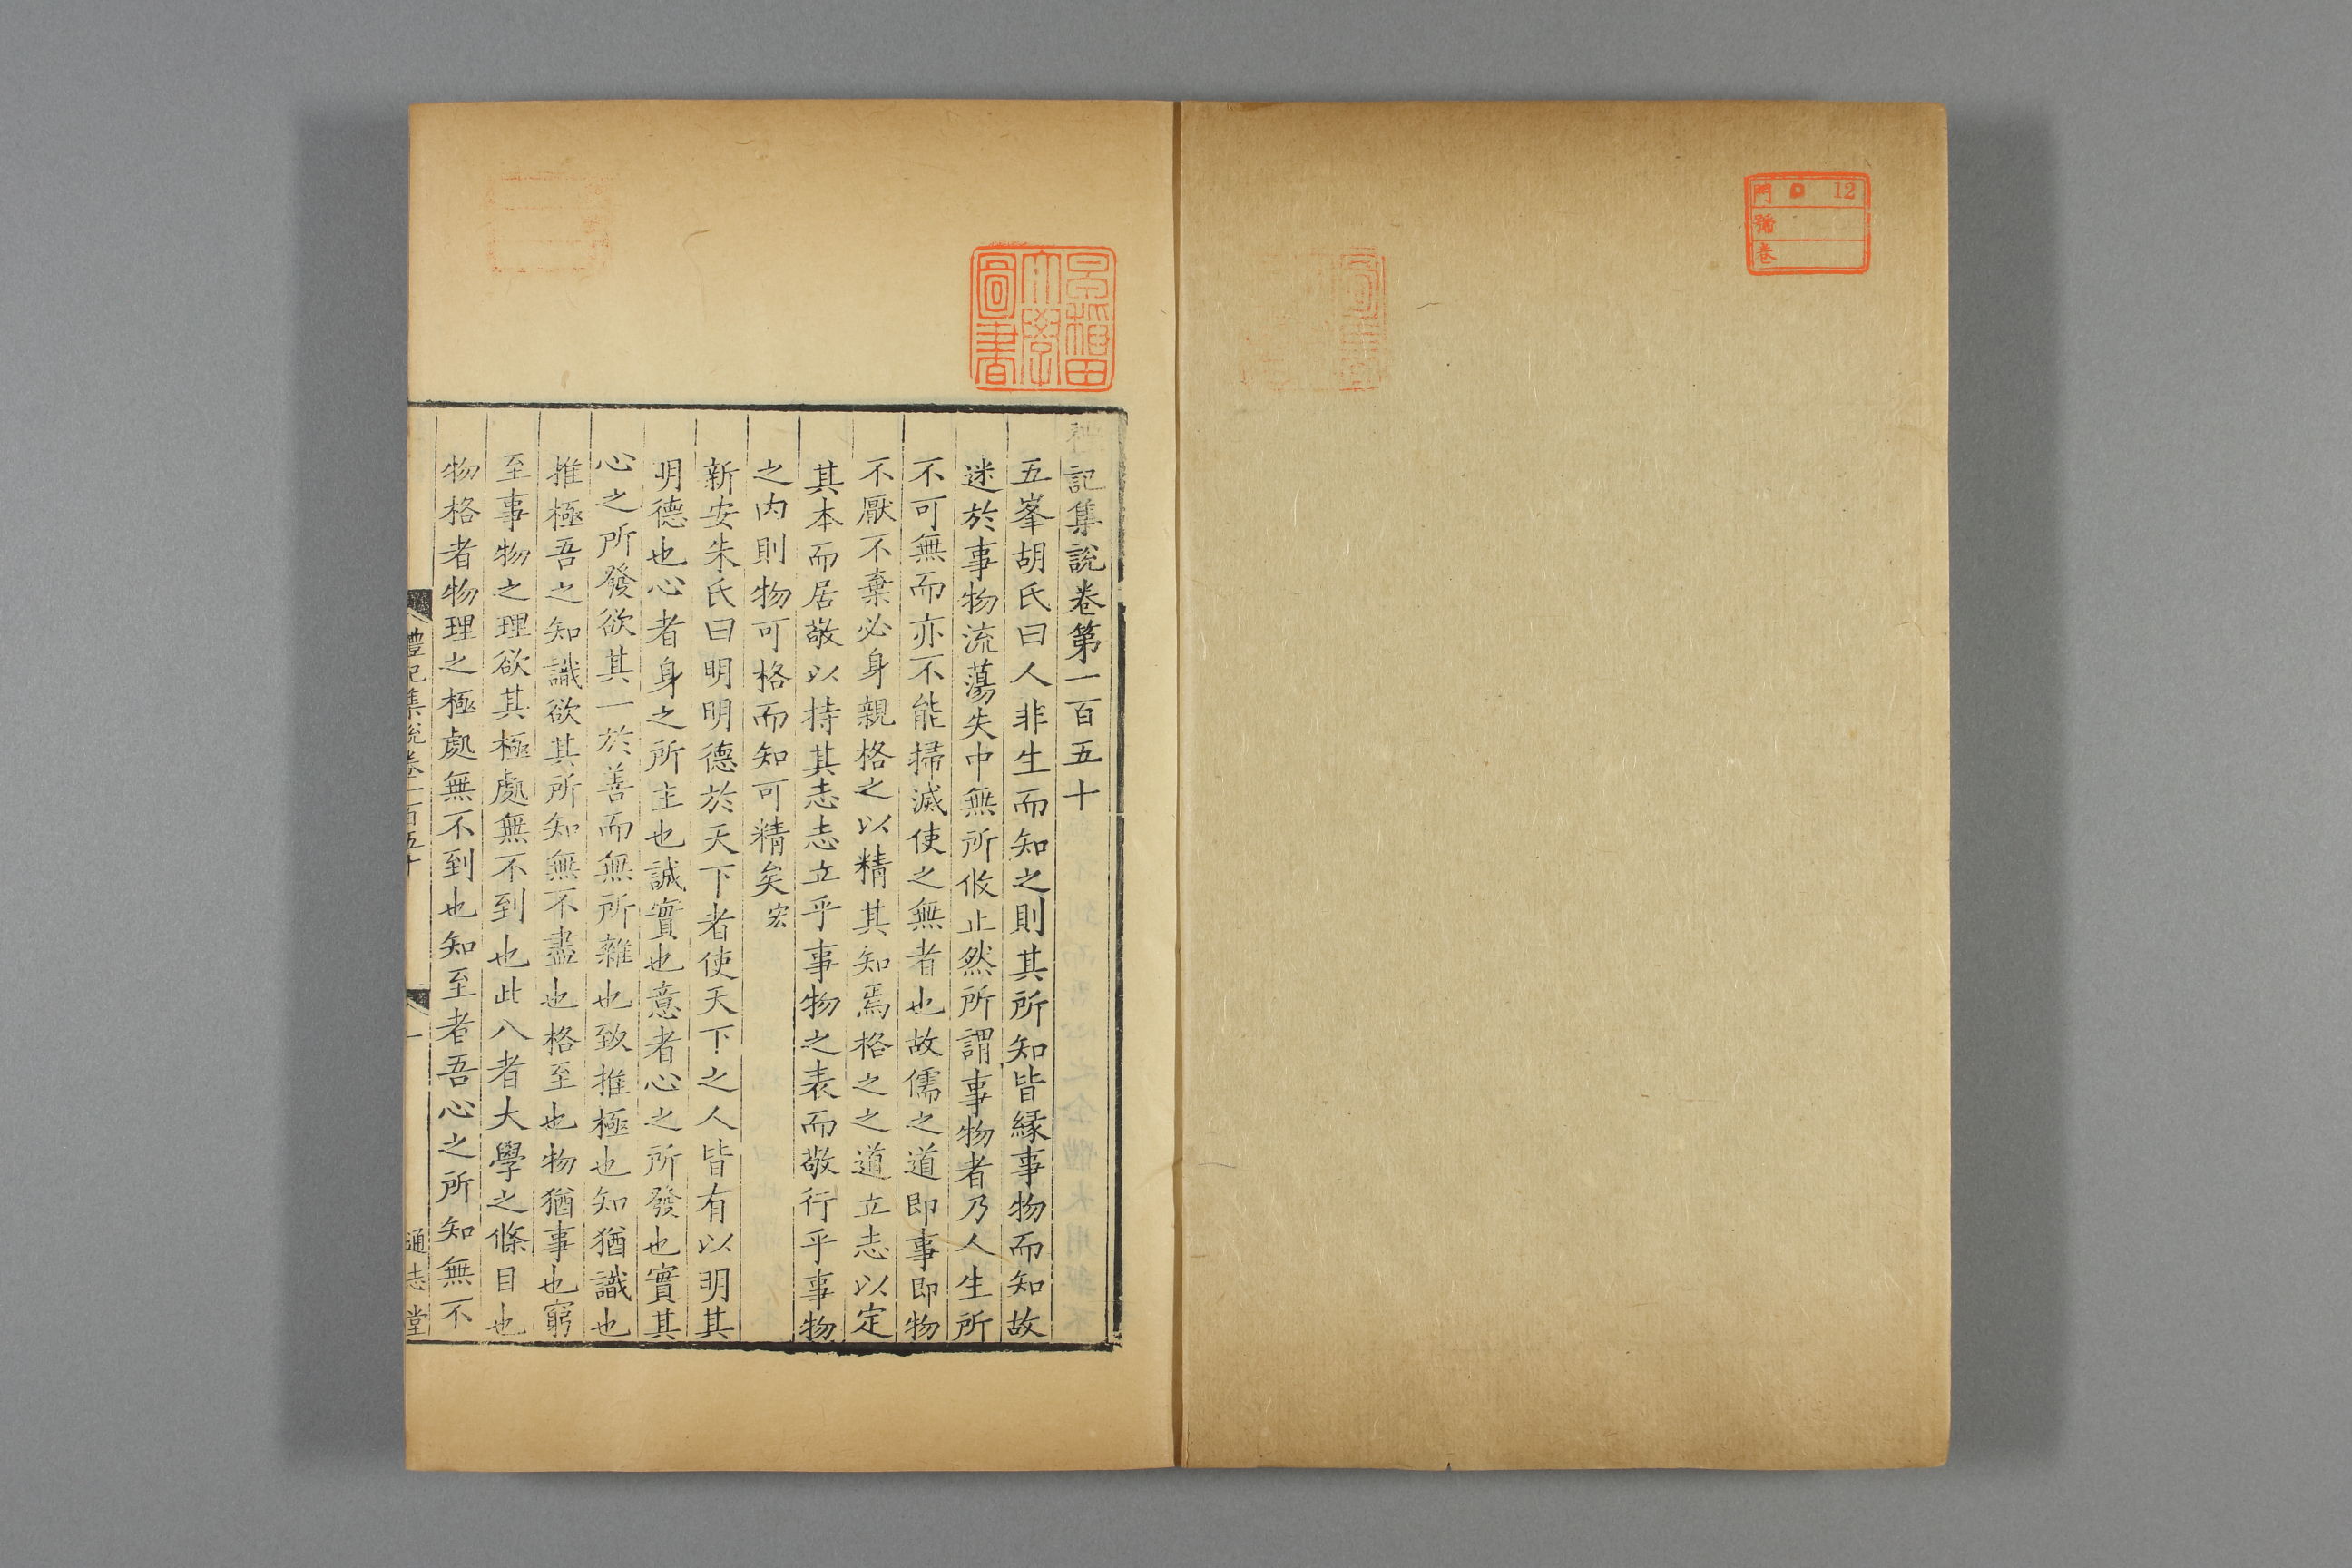 門 12
號
卷
早稲田
大學
圖書
禮記集說卷第一百五十
五峯胡氏曰人非生而知之則其所知皆緣事物而知故
迷於事物流蕩失中無所攸止然所謂事物者乃人生所
不可無而亦不能掃滅使之無者也故儒之道即事即物
不厭不棄必身親格之以精其知焉格之之道立志以定
其本而居敬以持其志志立乎事物之表而敬行乎事物
之内則物可格而知可精矣宏
新安朱氏曰明明德於天下者使天下之人皆有以明其
明德也心者身之所主也誠實也意者心之所發也實其
心之所發欲其一於善而無所雜也致推極也知猶識也
推極吾之知識欲其所知無不盡也格至也物猶事也窮
至事物之理欲其極處無不到也此八者大學之條目也
物格者物理之極處無不到也知至者吾心之所知無不
禮記集說卷一百五十 一 通志堂